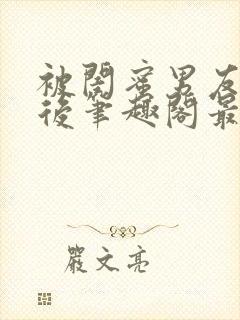 被閨蜜男友
後筆趣閣最
嚴文亮